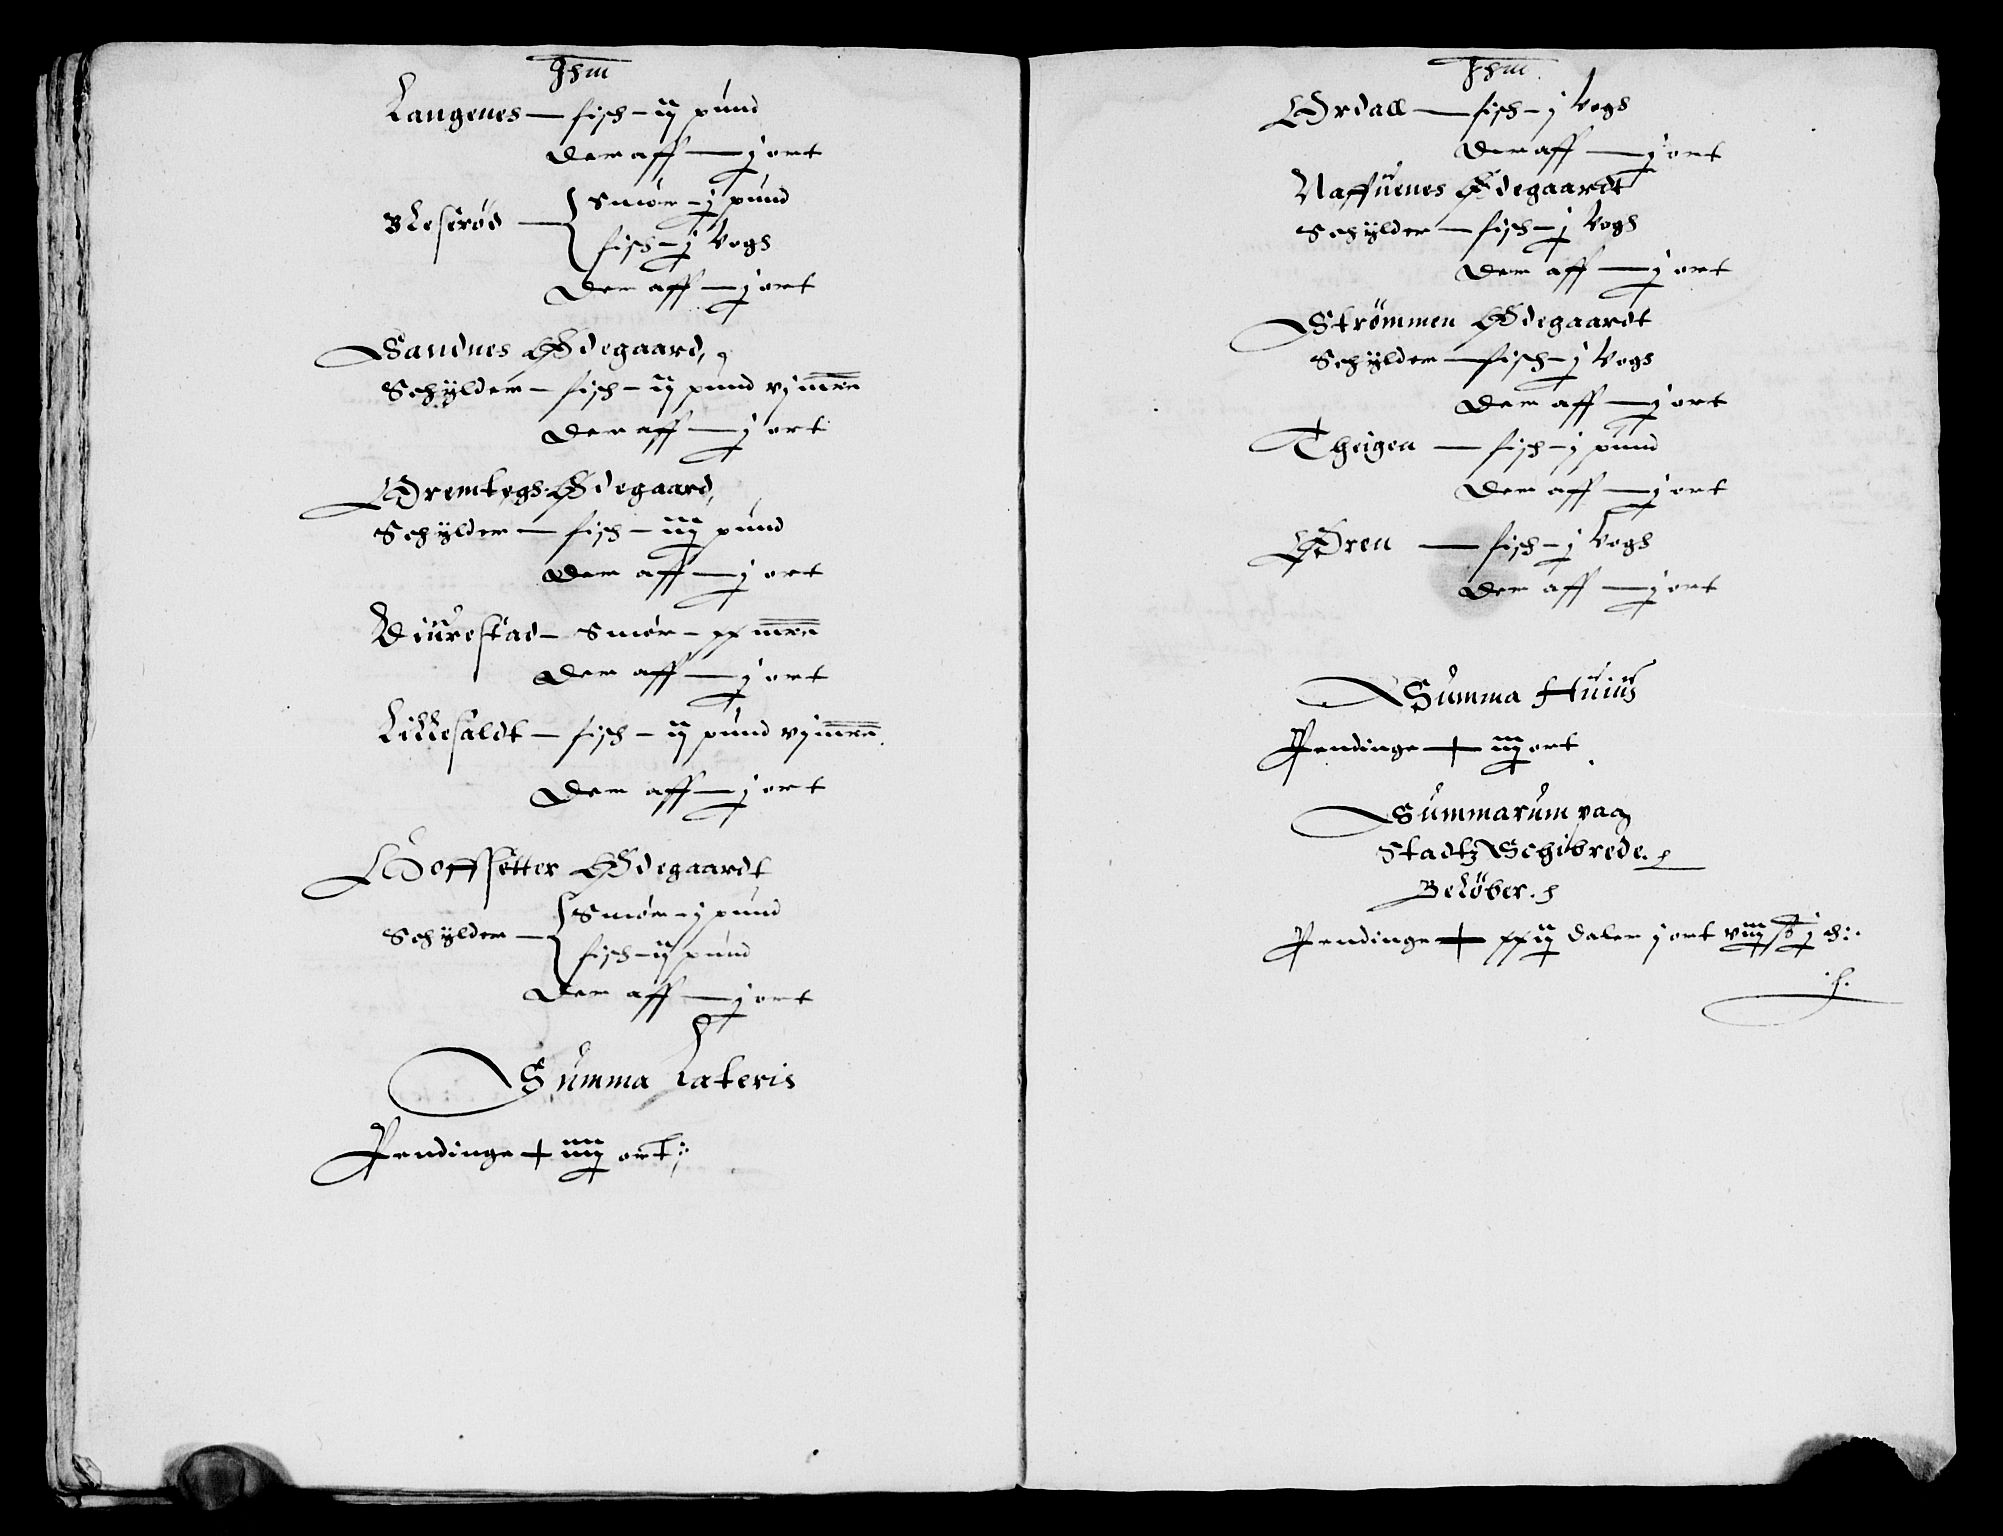 Jhm
Langenes — fisch – ij pund
Der aff — j ort
Bleserød — Smør – j pund
fisch – j Vogh
Der aff — j ort
Sandnes Ødegaard,
Schÿlder – fisch – ij pund vj mrꝛ
Der aff — j ort
Schÿlder — fisch – iij pund
Der aff — j ort
Diurestad – Smør – xx mrꝛ
Der aff — j ort
Lillesaldt — fisch – ij pund vj mrꝛ.
Der aff — j ort
Hoffsetter Ødegaardt
Schÿlder — Smør – j pund
fisch – ij pund
Der aff — j ort
Summa Lateris
Pendinge + iiij ort
Jhm
Ørdall — fisch – j Vogh
Der aff — j ort
Naffuenes Ødegaardt
Schÿlder — fisch – j Vogh
Der aff — j ort
Strömmen Ødegaardt
Schÿlder — fisch – j Vogh
Der aff — j ort
Theigen — fisch – j pund
Der aff — j ort
Øren — fisch – j Vogh
Der aff — j ort
Summa Huius
Pendinge + iij ort
Summarum paa
Stadtz Schibrede.
Belöber.
Pendinge + xxij daler j ort viij ß j